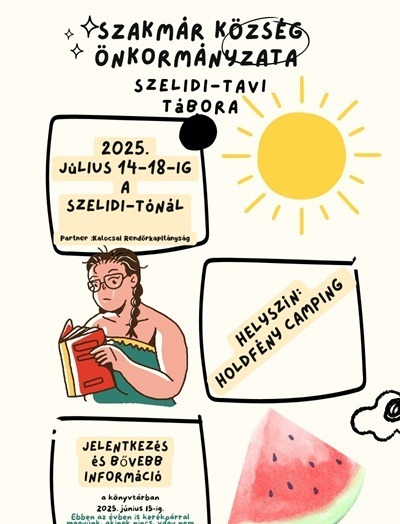 SZAKMÁR KÖZSÉG
ÖNKORMÁNYZATA
SZELIDI-TAVI
TáBORA
2025.
JúLIUS 14-18-IG
A
SZELIDI-TÓNÁL
Partner :Kalocsai Rendőrkapitányság
HELYSZíN:
HOLDFÉNY CAMPING
JELENTKEZÉS
éS BŐVEBB
INFORMÁCIÓ
a könyvtárban
2025. június 15-ig.
Ebben az évben is kerékpárral
megyünk, akinek nincs, vagy nem